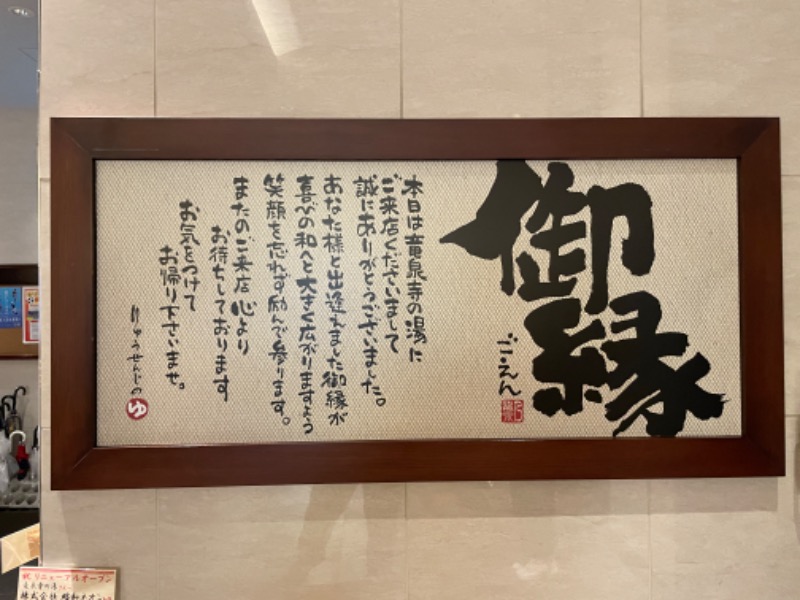 御縁
ご、えん
本日は竜泉寺の湯に
ご来店くださいまして
誠にありがとうございました。
あなた様と出逢えました御縁が
喜びの和へと大きく広がりますよう
笑顔を忘れず励んで参ります。
またのご来店 心より
お待ちしております
お気をつけて
お帰り下さいませ。
りゅうせんじの
ゆ
祝リニューアルオープン
株式会社